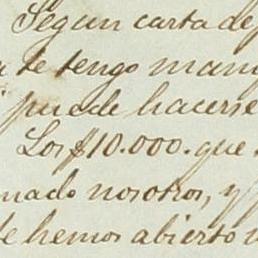 Segun carta de
te tengo man
puede hacerse
Los $10.000. que
mado nosotros, y
de hemos abierto